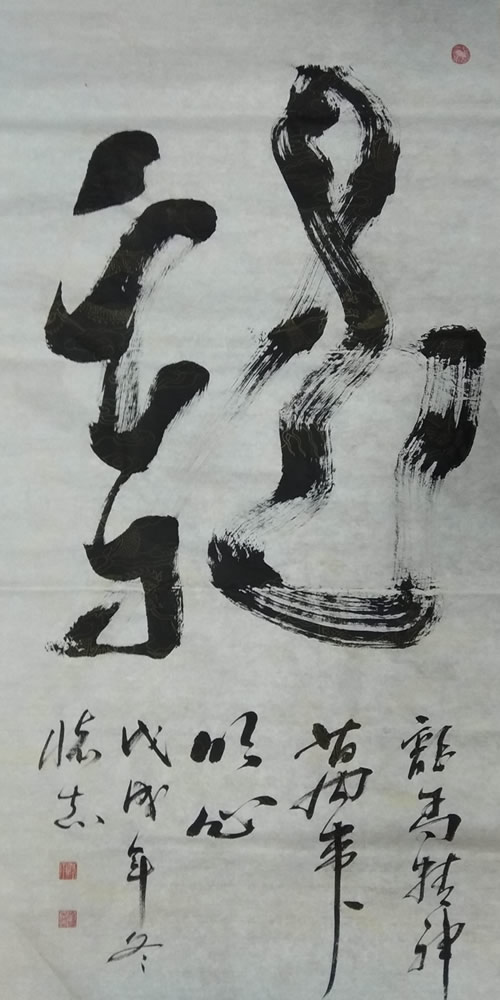 龍
龍馬精神
萬事
順心
戊戌年冬
志